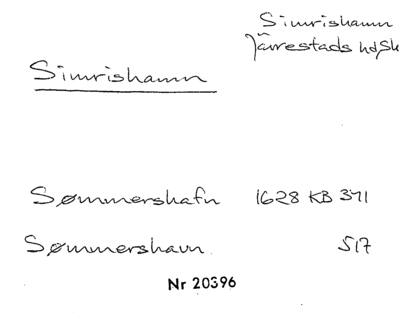 Simrishamn
Järestads hd, Sk
Simrishamn
Sømmershafn 1628 KB 341
Sømmershavn 517
Nr 20396